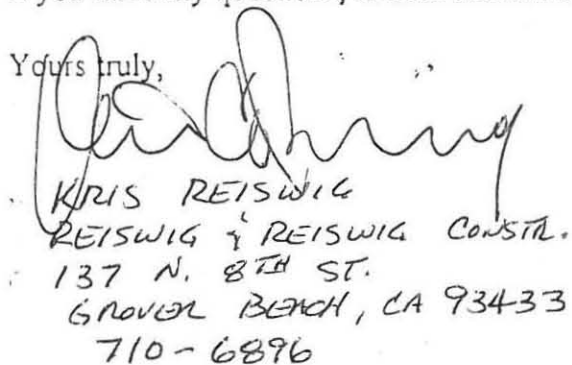 Yours truly,
KRIS REISWIG
REISWIG & REISWIG CONSTR.
137 N. 8TH ST.
GROVER BEACH, CA 93433
710-6896